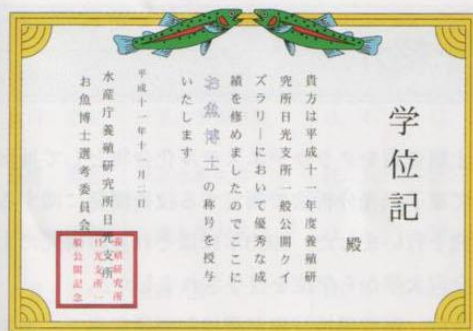 学位記
殿
貴方は平成十一年度養殖研
究所日光支所一般公開クイ
ズラリーにおいて優秀な成
績を修めましたのでここに
お魚博士の称号を授与
いたします
平成十一年十一月二
水産庁養殖研究所日光支所
お魚博士選考委員会
養殖研究所
日光支所一
般公開記念